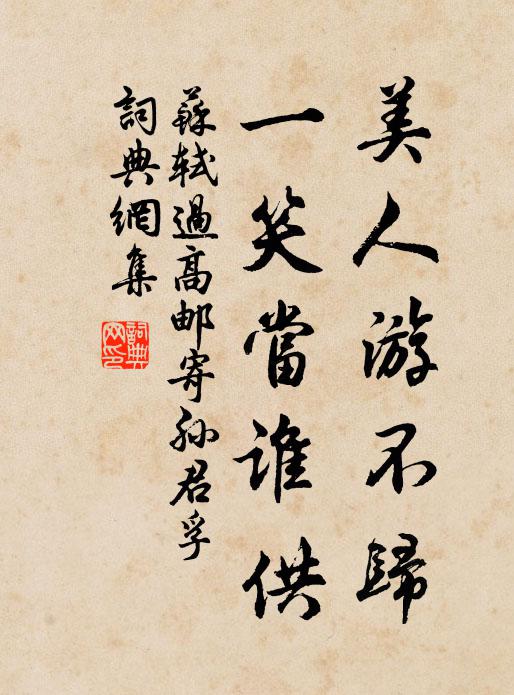 美人游不歸
一笑當誰供
蘇軾過高邮寄孫君孚
詞典網集
詞典网印